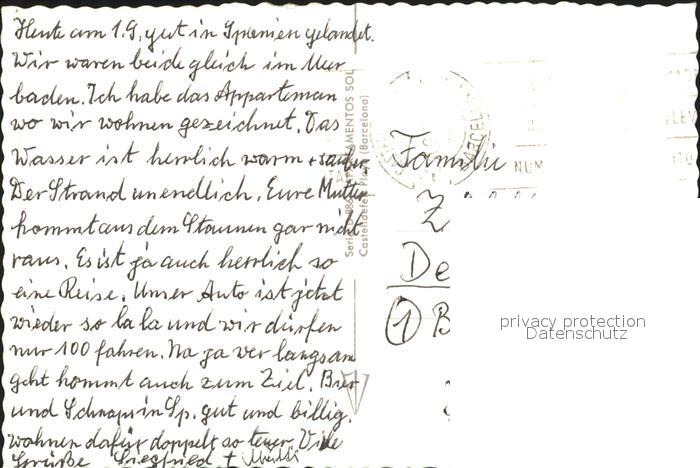 Heute am 1.9. gut in Spanien gelandet.
Wir waren beide gleich im Meer
baden. Ich habe das Apparteman
wo wir wohnen gezeichnet. Das
Wasser ist herrlich warm + sauber
Der Strand unendlich. Eure Mutter
kommt aus dem Staunen gar nicht
raus. Es ist ja auch herrlich so
eine Reise. Unser Auto ist jetzt
wieder so la la und wir dürfen
nur 100 fahren. Na ja wer langsam
geht kommt auch zum Ziel. Bier
und Schnaps in Sp. gut und billig.
wohnen dafür doppelt so teuer. Viele
Grüße Siegfried +
APARTAMENTOS SOL
Castelldefels Playa (Barcelona)
Familie
Z
De
1 B
NUM
privacy protection
Datenschutz